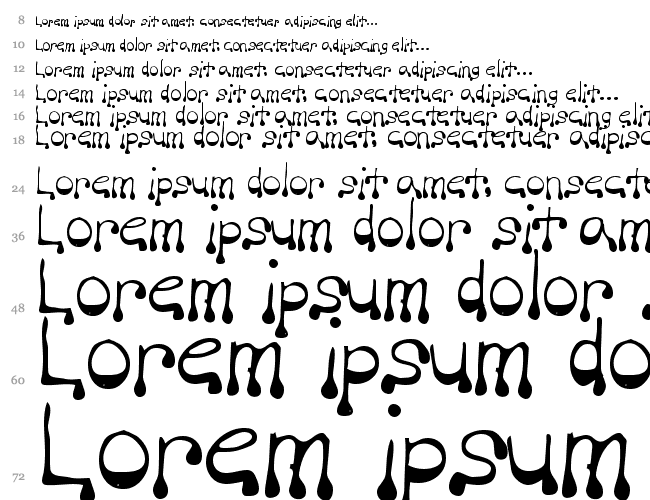 8 Lorem ipsum dolor sit amet; consectetuer adipiscing elit...
10 Lorem ipsum dolor sit amet; consectetuer adipiscing elit...
12 Lorem ipsum dolor sit amet; consectetuer adipiscing elit...
14 Lorem ipsum dolor sit amet; consectetuer adipiscing elit...
16 Lorem ipsum dolor sit amet; consectetuer adipiscing elit
18 Lorem ipsum dolor sit amet; consectetuer adipisc
24 Lorem ipsum dolor sit amet; consect
36 Lorem ipsum dolor sit am
48 Lorem ipsum dolor
60 Lorem ipsum do
72 Lorem ipsum